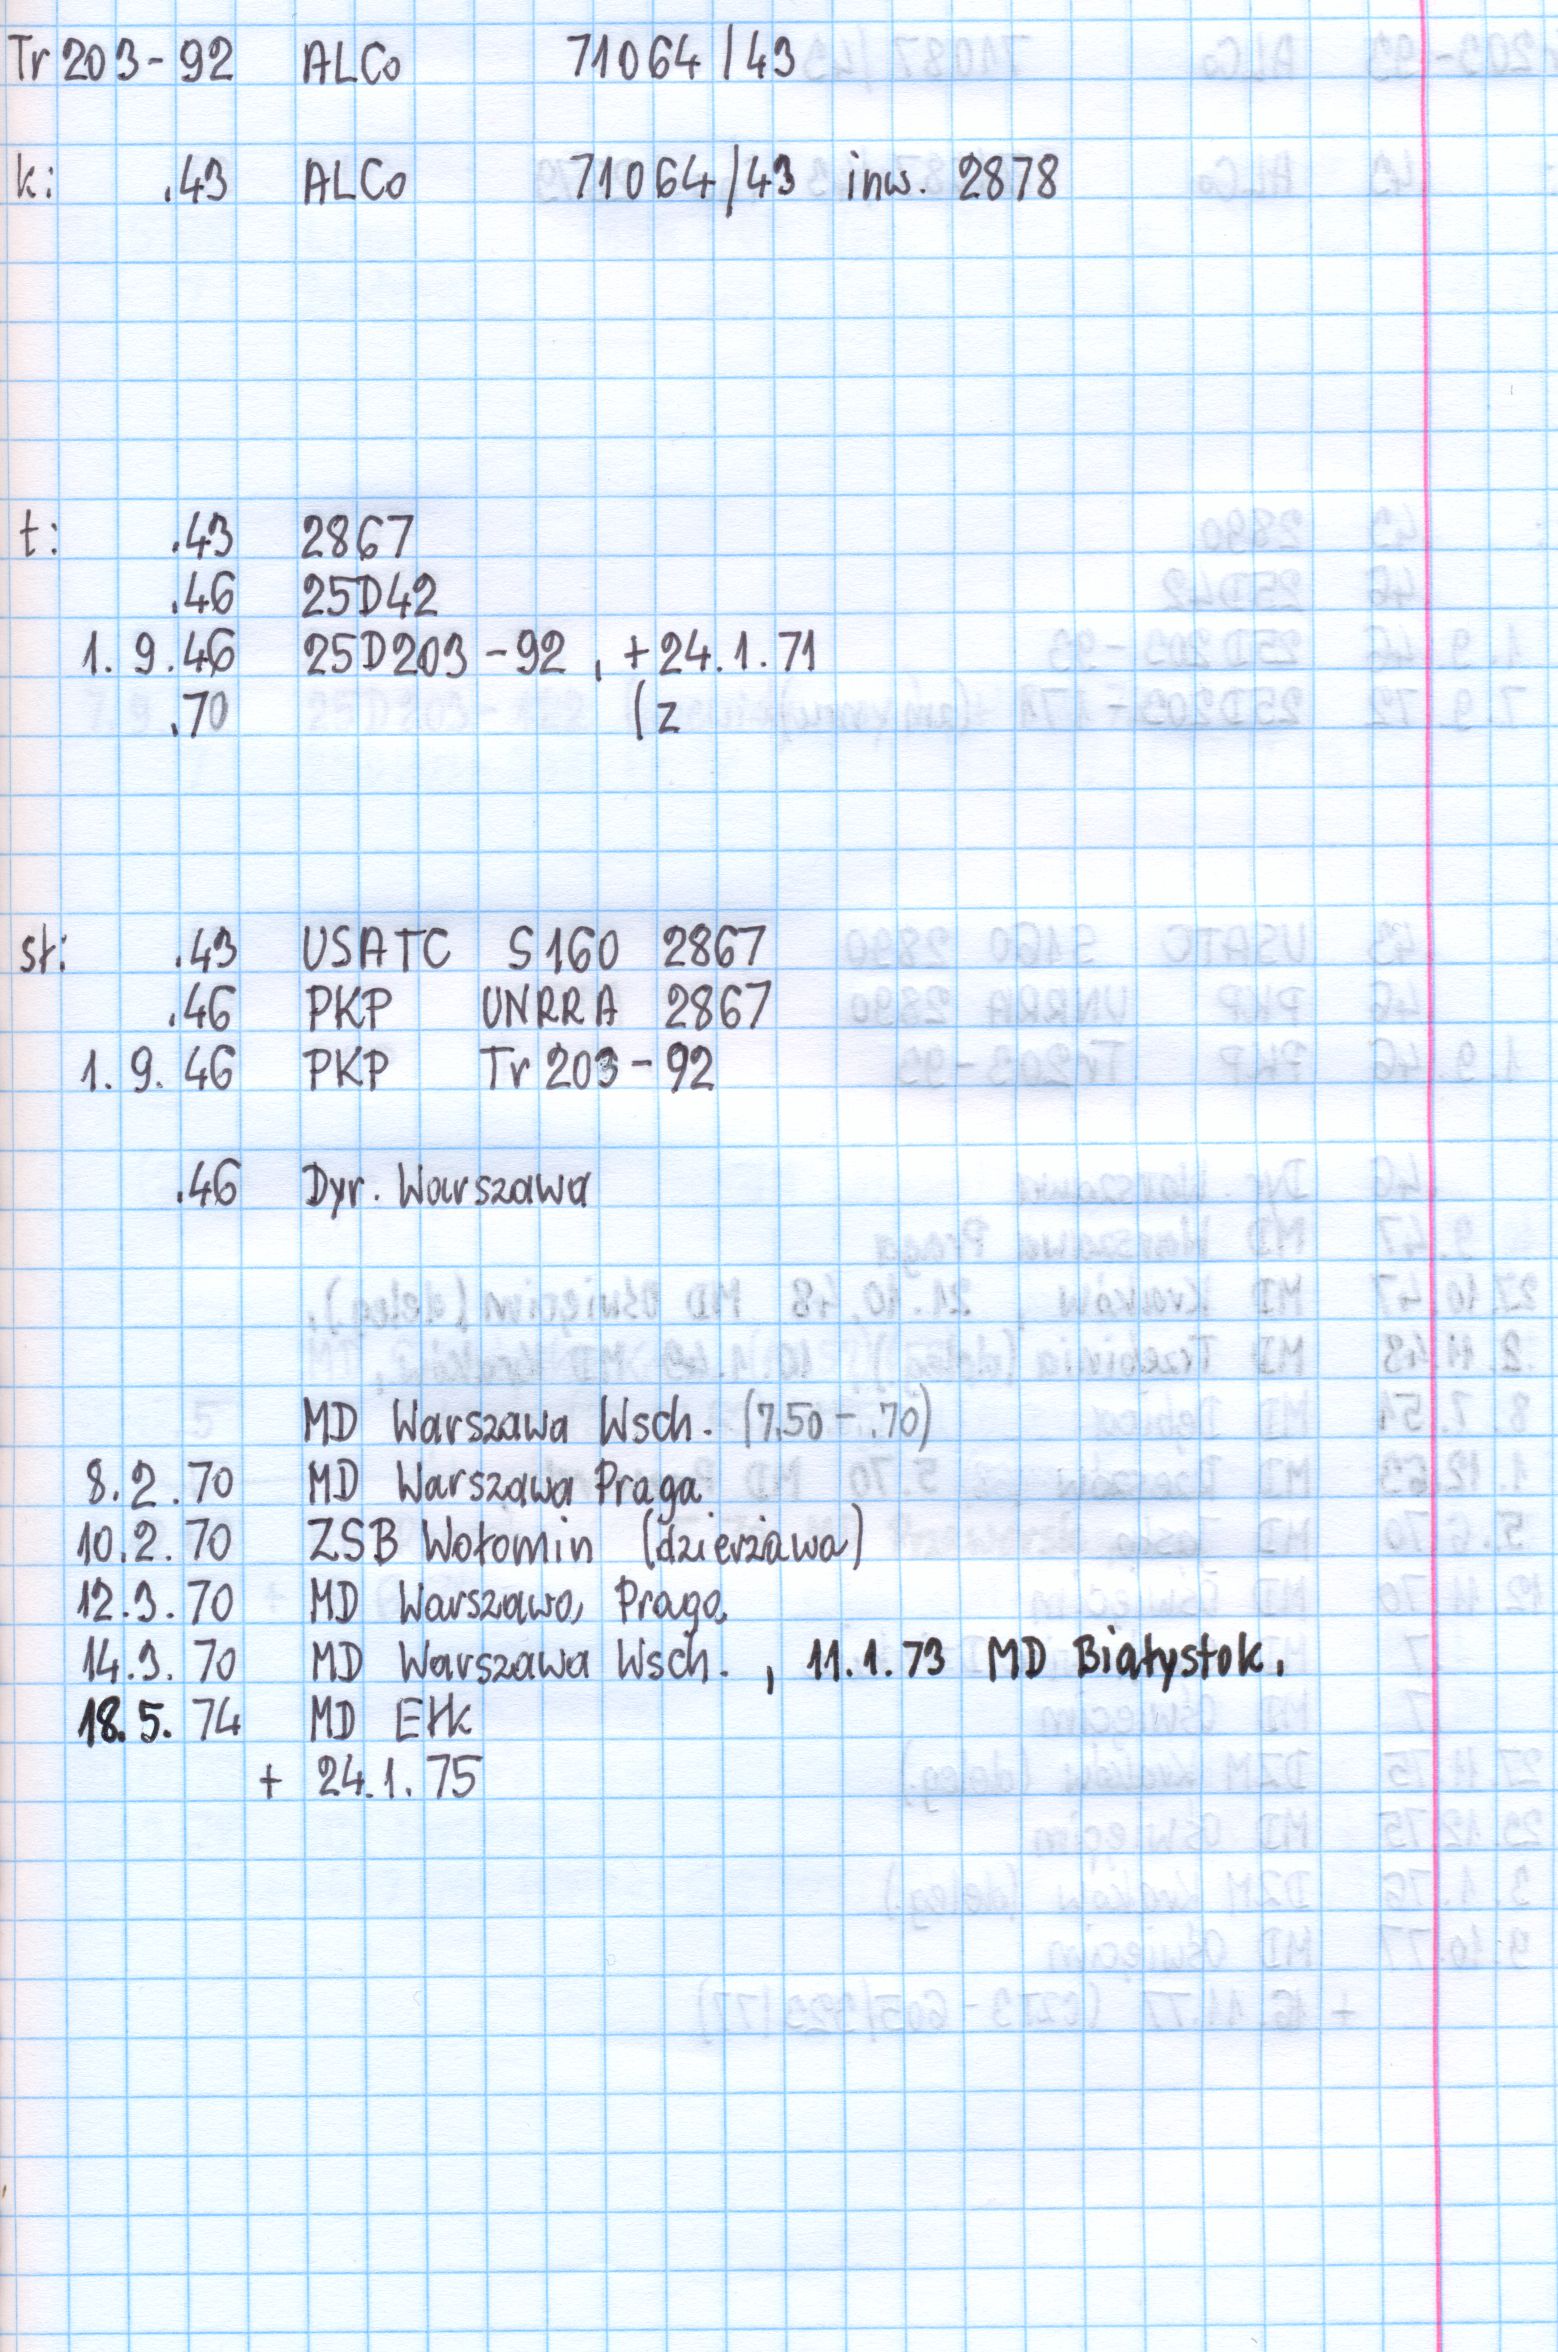 Tr 203-92 ALCo 71064/43
k: .43 ALCo 71064/43 inw. 2878
t: .43 2867
.46 25D42
1.9.46 25D203-92, +24.1.71
.70 (z
st: .43 USATC S160 2867
.46 PKP UNRRA 2867
1.9.46 PKP Tr 203-92
.46 Dyr. Warszawa
MD Warszawa Wsch. (7.50-.70)
8.2.70 MD Warszawa Praga
10.2.70 ZSB Wołomin (dzierżawa)
12.3.70 MD Warszawa Praga
14.3.70 MD Warszawa Wsch., 11.1.73 MD Białystok,
18.5.74 MD Ełk
+ 24.1.75